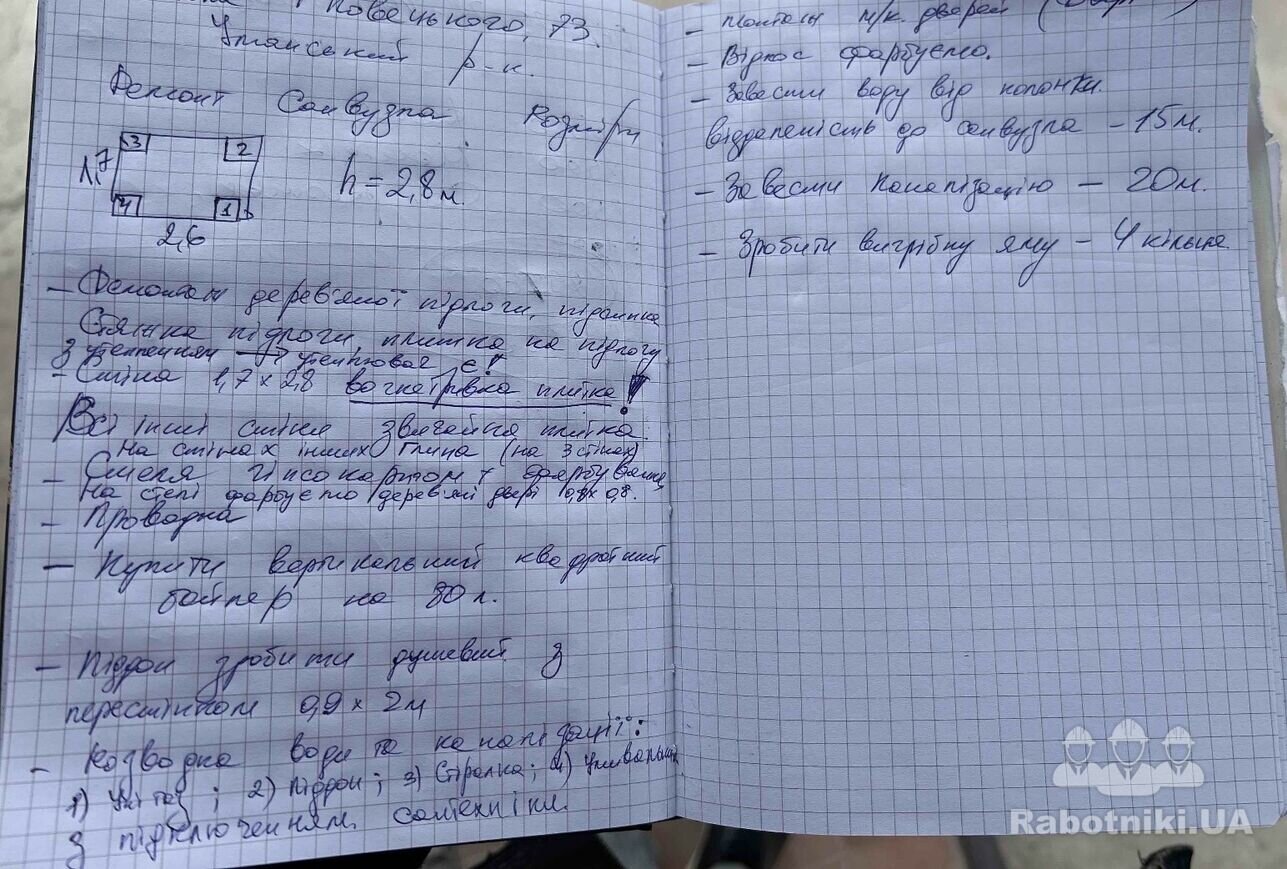 Новецького, 73.
Уманський р-н.
Ремонт Санвузла Розміри
3
2
1,7
h = 2,8 м.
4
1
2,6
- Демонтаж дерев'яної підлоги, підсипка
Стяжка підлоги, плитка на підлогу
З утепленням → утеплювач є!
- Стіна 1,7 х 2,8 вогнетривка плитка!
Всі інші стіни звичайна плитка.
На стінах інших глина (на 3 стінах)
- Стеля гіпсокартон + фарбування
На стелі фарбуємо дерев'яні двері 0,8 х 0,8.
- Проводка
- Купити вертикальний квадратний
бойлер на 80 л.
- Піддон зробити душевий з
перестінком 0,9 х 2м
- Розводка води та каналізації:
1) Унітаз; 2) Піддон; 3) Стіралка; 4) Умивальник
З підключенням сантехніки.
- Монтаж м/к. дверей
- Відкос фарбуємо.
- Завести воду від колонки.
віддаленість до санвузла - 15 м.
- Завести каналізацію - 20 м.
- Зробити вигрібну яму - 4 кільця
Rabotniki.UA